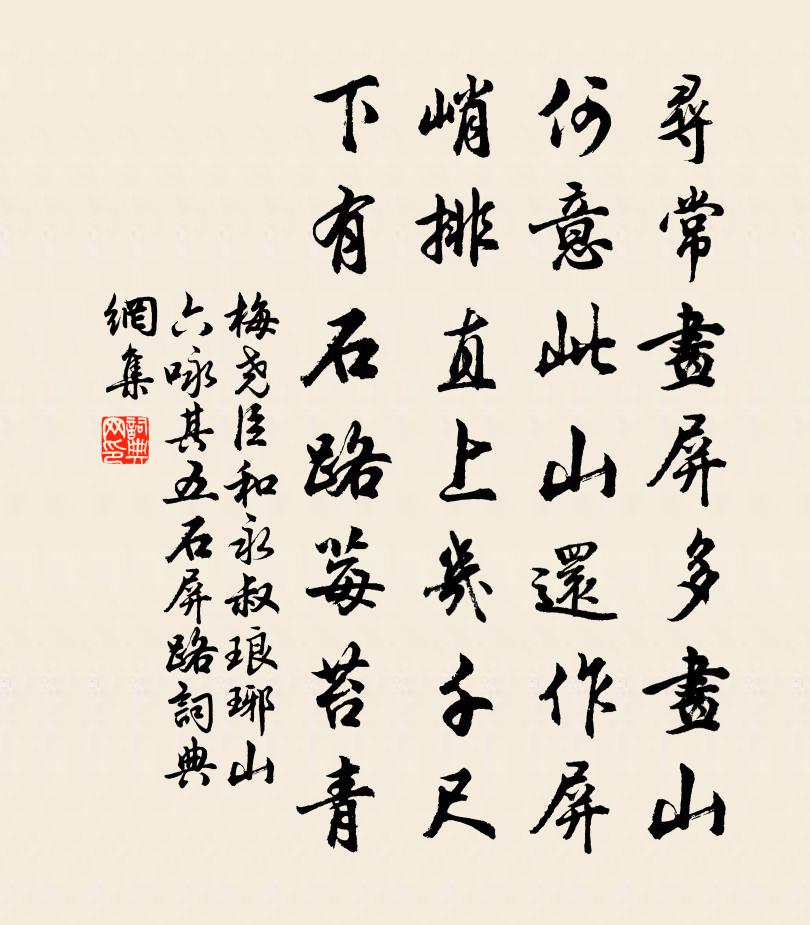 尋常畫屏多畫山
何意此山還作屏
峭排直上幾千尺
下有石路莓苔青
梅尧臣和永叔琅琊山
六咏其五石屏路詞典
網集
詞典
网印